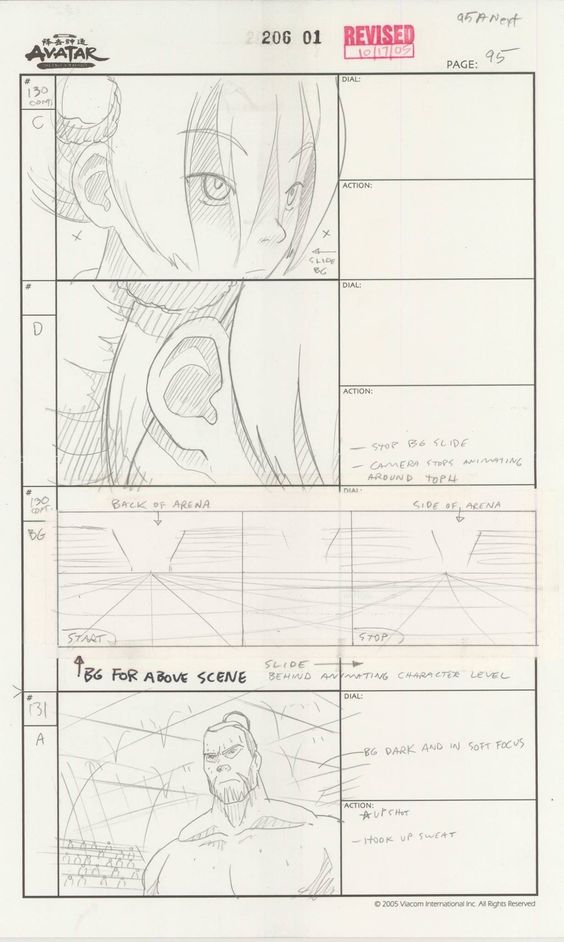 95A Next
206 01
REVISED
10/17/05
降去神通
AVATAR
PAGE: 95
#
130
CONT.
C
DIAL:
X
X
SLIDE
BG
ACTION:
#
D
DIAL:
ACTION:
— STOP BG SLIDE
— CAMERA STOPS ANIMATING
AROUND TOPH
#
130
CONT.
BG
DIAL:
BACK OF ARENA
SIDE OF ARENA
START
STOP
BG FOR ABOVE SCENE
SLIDE
BEHIND ANIMATING CHARACTER LEVEL
#
131
A
DIAL:
— BG DARK AND IN SOFT FOCUS
ACTION:
UPSHOT
— HOOK UP SWEAT
© 2005 Viacom International Inc. All Rights Reserved